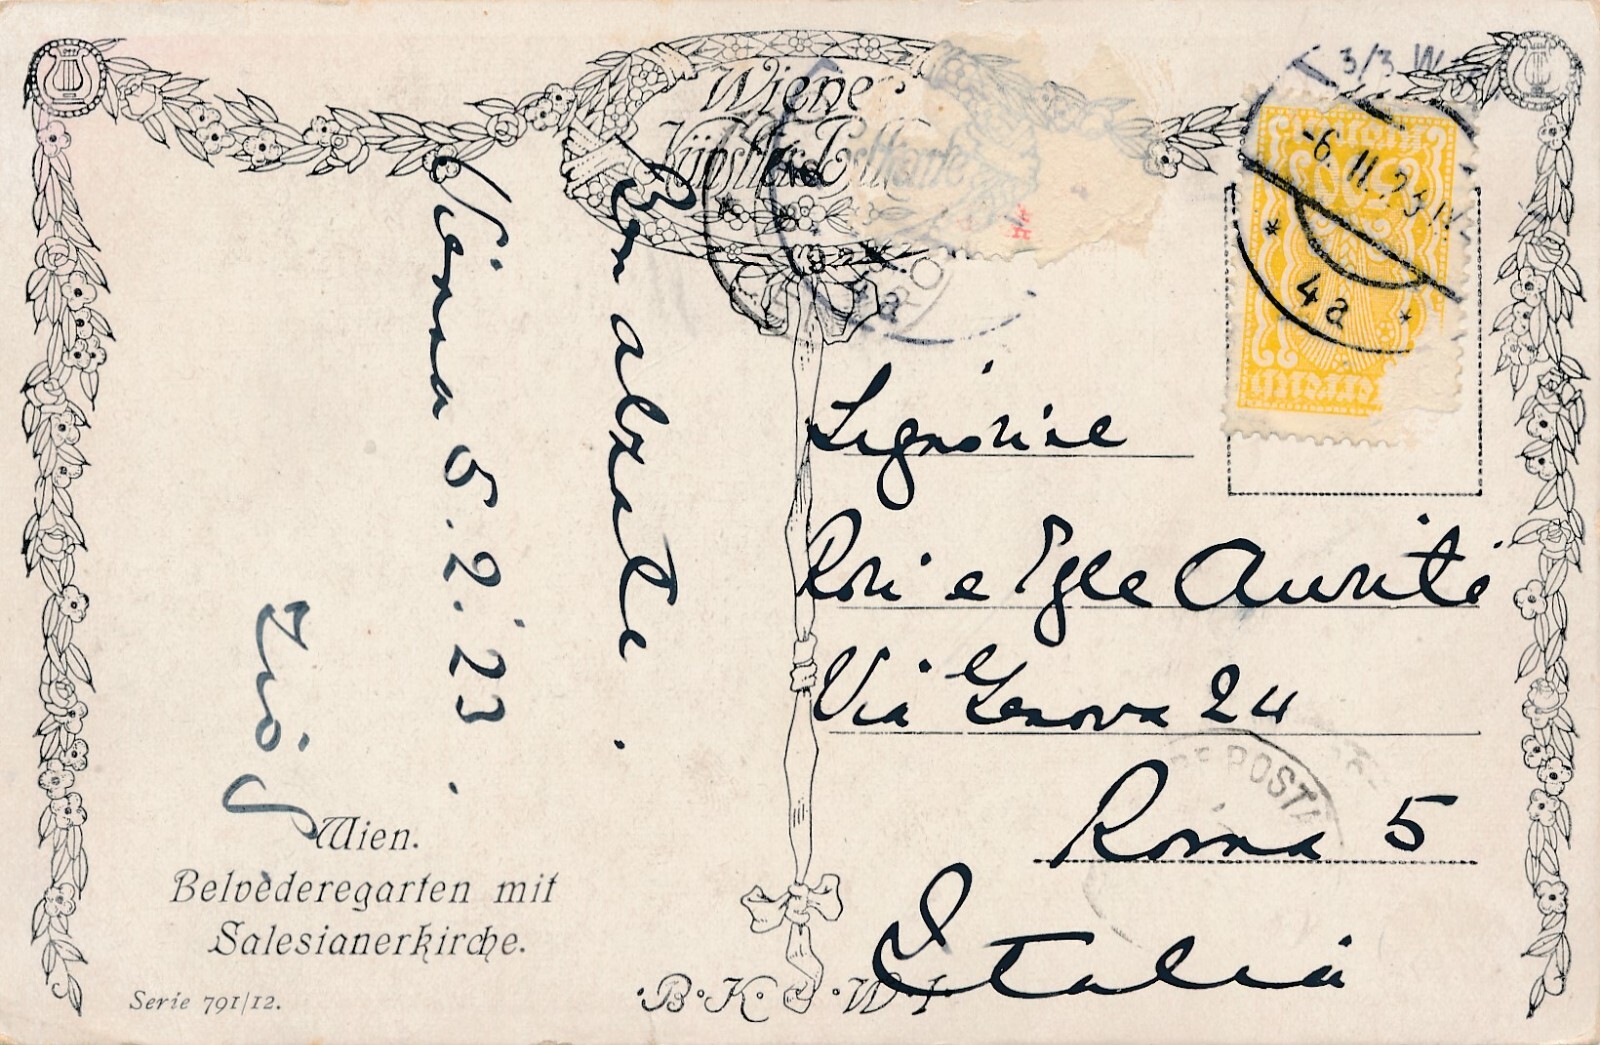 Wiener
Künstler-Postkarte
T 3/3 W
-6.II.23
4a
4a
Ben alzate.
Vienna 5.2.23.
Zio
Signorine
Rori e Egle Auriti
Via Genova 24
Roma 5
Italia
POSTA
Wien.
Belvederegarten mit
Salesianerkirche.
Serie 791/12.
·B·K·W·I·